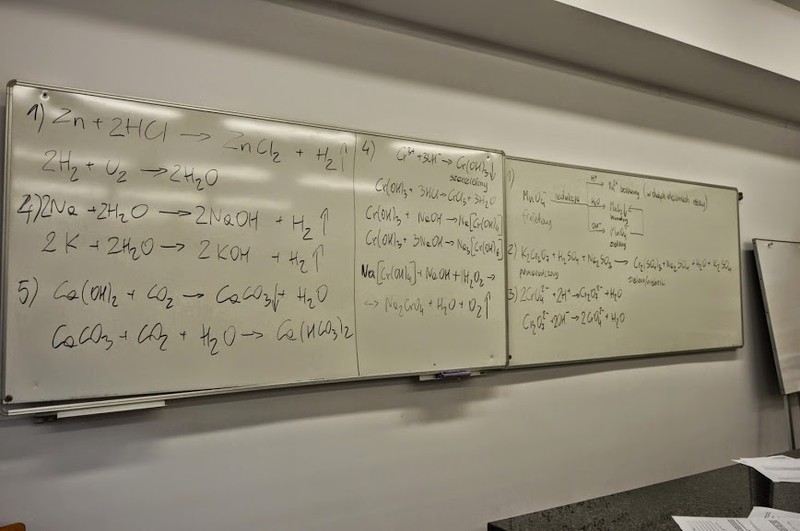 1) Zn + 2HCl → ZnCl2 + H2↑
2H2 + O2 → 2H2O
4) 2Na + 2H2O → 2NaOH + H2↑
2K + 2H2O → 2KOH + H2↑
5) Ca(OH)2 + CO2 → CaCO3↓ + H2O
CaCO3 + CO2 + H2O → Ca(HCO3)2
4) Cr3+ + 3OH- → Cr(OH)3↓
szarozielony
Cr(OH)3 + 3HCl → CrCl3 + 3H2O
Cr(OH)3 + NaOH → Na[Cr(OH)4]
Cr(OH)3 + 3NaOH → Na3[Cr(OH)6]
Na[Cr(OH)4] + NaOH + H2O2 →
→ Na2CrO4 + H2O + O2↑
1)
H+
MnO4- redukcja H2O
fioletowy
OH-
zielony
2) K2Cr2O7 + H2SO4 + Na2SO3 → Cr2(SO4)3 + Na2SO4 + H2O + K2SO4
pomarańczowy
3) 2CrO4 2- + 2H+ → Cr2O7 2- + H2O
Cr2O7 2- + 2OH- → 2CrO4 2- + H2O